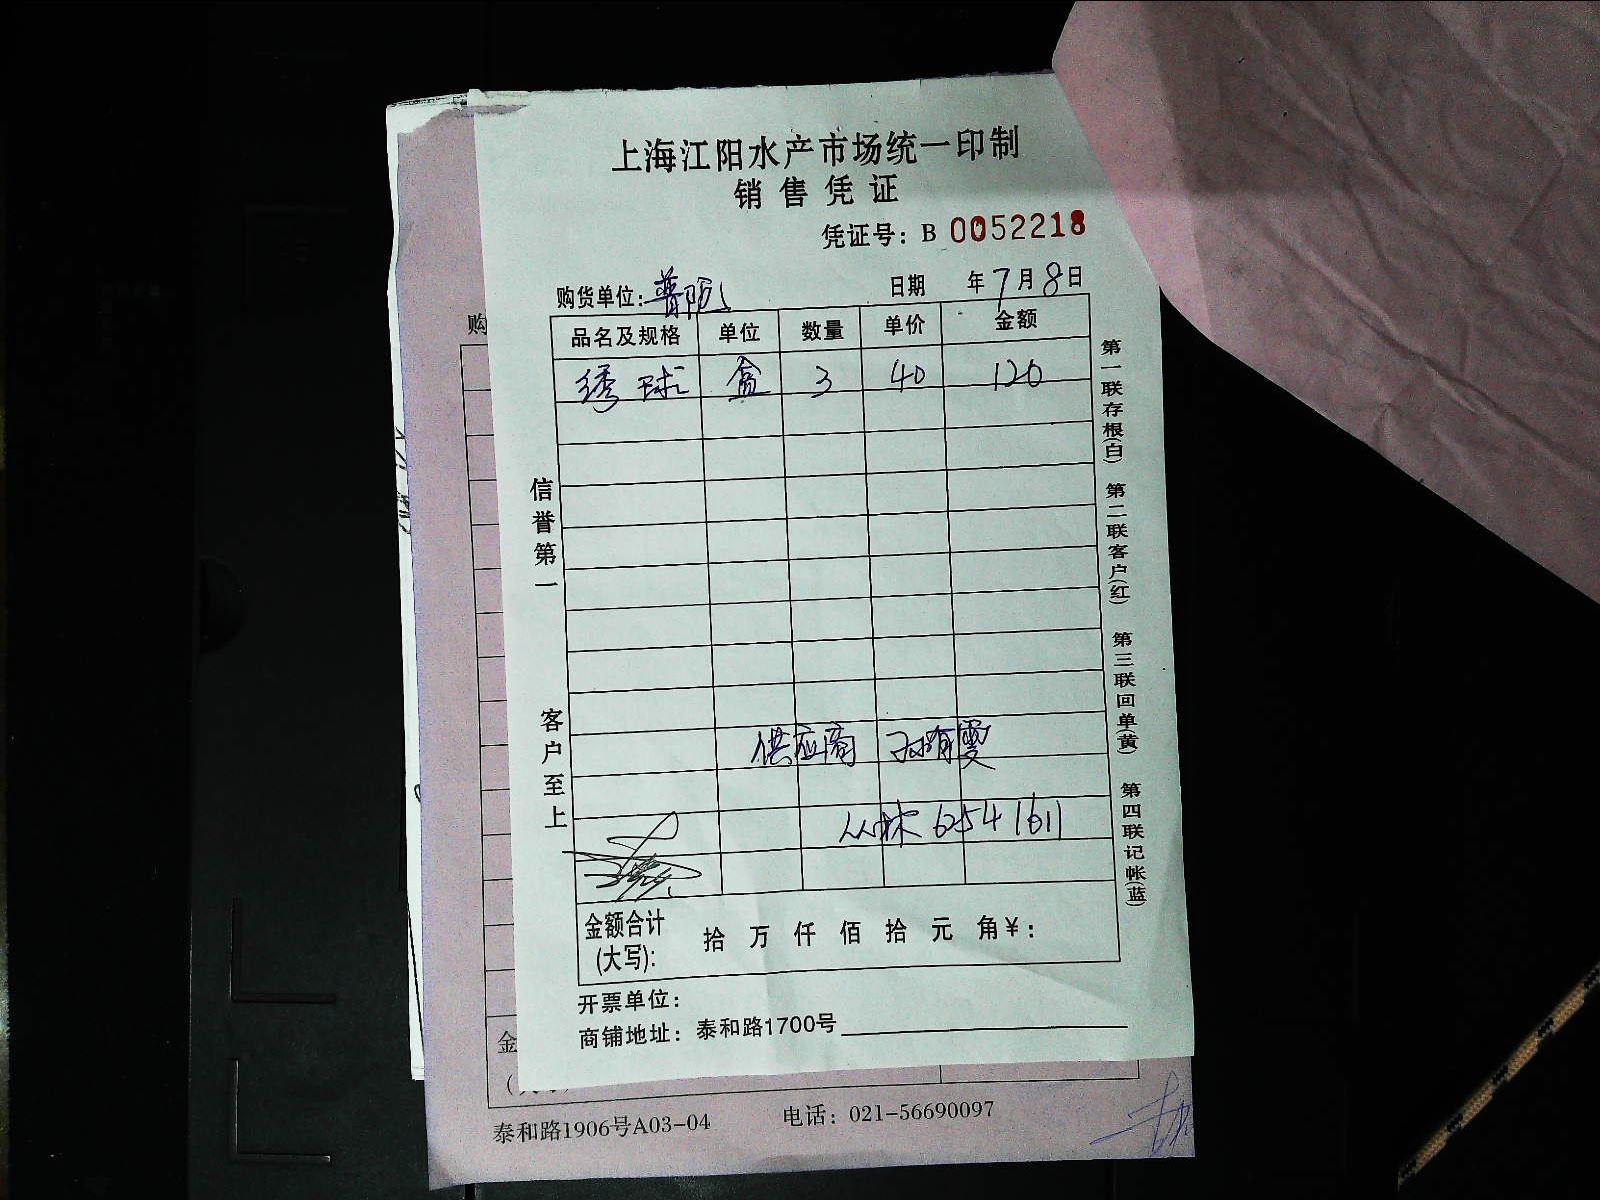 上海江阳水产市场统一印制
销售凭证
凭证号：B 0052218
购货单位： 日期 年7月8日
品名及规格 单位 数量 单价 金额
绣球 盒 3 40 120
供应商
6541611
金额合计(大写)： 拾 万 仟 佰 拾 元 角¥：
开票单位：
商铺地址：泰和路1700号
信誉第一 客户至上
第一联存根(白) 第二联客户(红) 第三联回单(黄) 第四联记帐(蓝)
购
金
泰和路1906号A03-04 电话：021-56690097